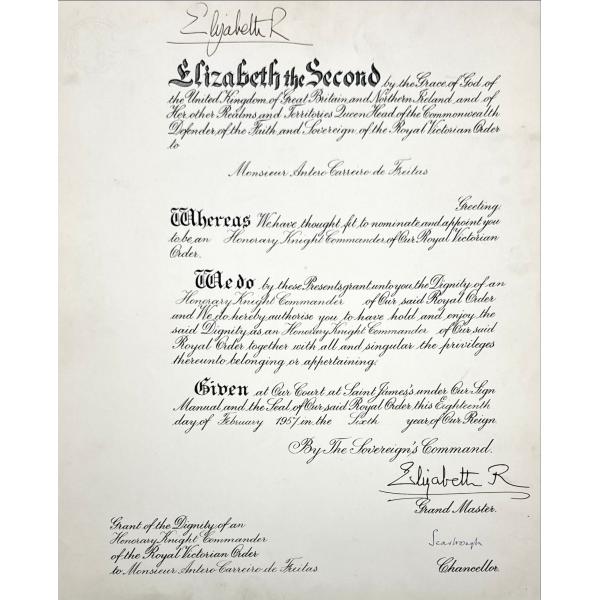 Elizabeth R
Elizabeth the Second by the Grace of God of
the United Kingdom of Great Britain and Northern Ireland and of
Her other Realms and Territories Queen Head of the Commonwealth
Defender of the Faith and Sovereign of the Royal Victorian Order
to
Monsieur Antero Carreiro de Freitas
Greeting.
Whereas We have thought fit to nominate and appoint you
to be an Honorary Knight Commander of Our Royal Victorian
Order.
We do by these Presents grant unto you the Dignity of an
Honorary Knight Commander of Our said Royal Order
and We do hereby authorise you to have hold and enjoy the
said Dignity as an Honorary Knight Commander of Our said
Royal Order together with all and singular the privileges
thereunto belonging or appertaining.
Given at Our Court at Saint James's under Our Sign
Manual and the Seal of Our said Royal Order this Eighteenth
day of February 1957 in the Sixth year of Our Reign.
By The Sovereign's Command.
Elizabeth R
Grand Master.
Grant of the Dignity of an
Honorary Knight Commander
of the Royal Victorian Order
to Monsieur Antero Carreiro de Freitas
Scarbrough
Chancellor.